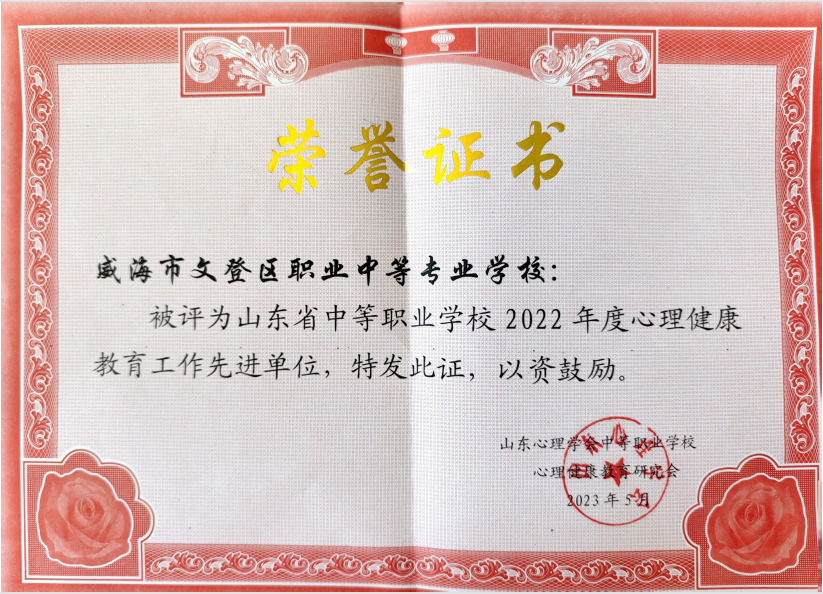 荣誉证书
威海市文登区职业中等专业学校：
被评为山东省中等职业学校2022年度心理健康
教育工作先进单位，特发此证，以资鼓励。
山东心理学会中等职业学校
心理健康教育研究会
2023年5月